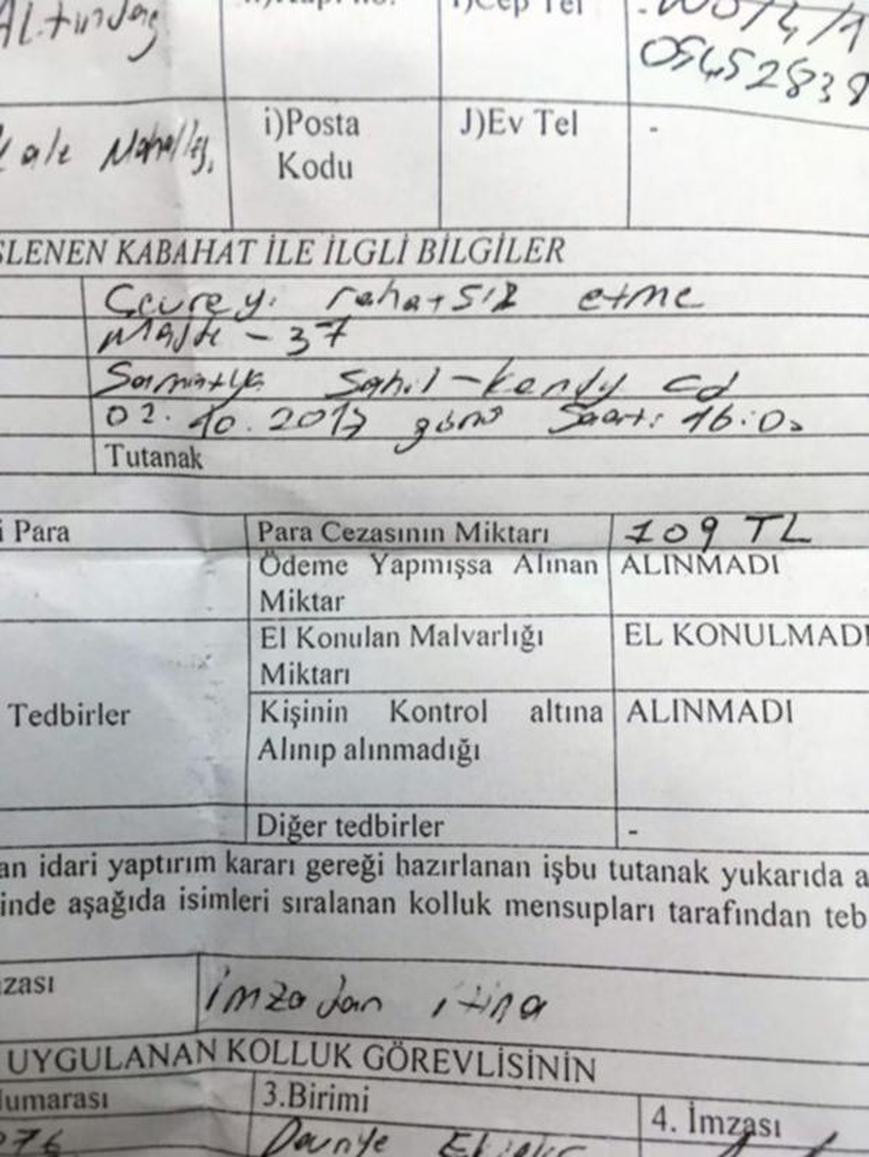 Altındağ
I)Cep Tel
05452839
Kale Mahallesi,
i)Posta Kodu
J)Ev Tel
-
ŞLENEN KABAHAT İLE İLGLİ BİLGİLER
Çevreyi rahatsız etme
Madde - 37
Samatya Sahil - Kendy cd
02.10.2017 günü Saat: 16:00
Tutanak
i Para
Para Cezasının Miktarı
109 TL
Ödeme Yapmışsa Alınan
ALINMADI
Miktar
El Konulan Malvarlığı
EL KONULMADI
Miktarı
Tedbirler
Kişinin Kontrol altına
ALINMADI
Alınıp alınmadığı
Diğer tedbirler
-
an idari yaptırım kararı gereği hazırlanan işbu tutanak yukarıda a
inde aşağıda isimleri sıralanan kolluk mensupları tarafından teb
zası
İmzadan itina
UYGULANAN KOLLUK GÖREVLİSİNİN
umarası
3.Birimi
4. İmzası
076